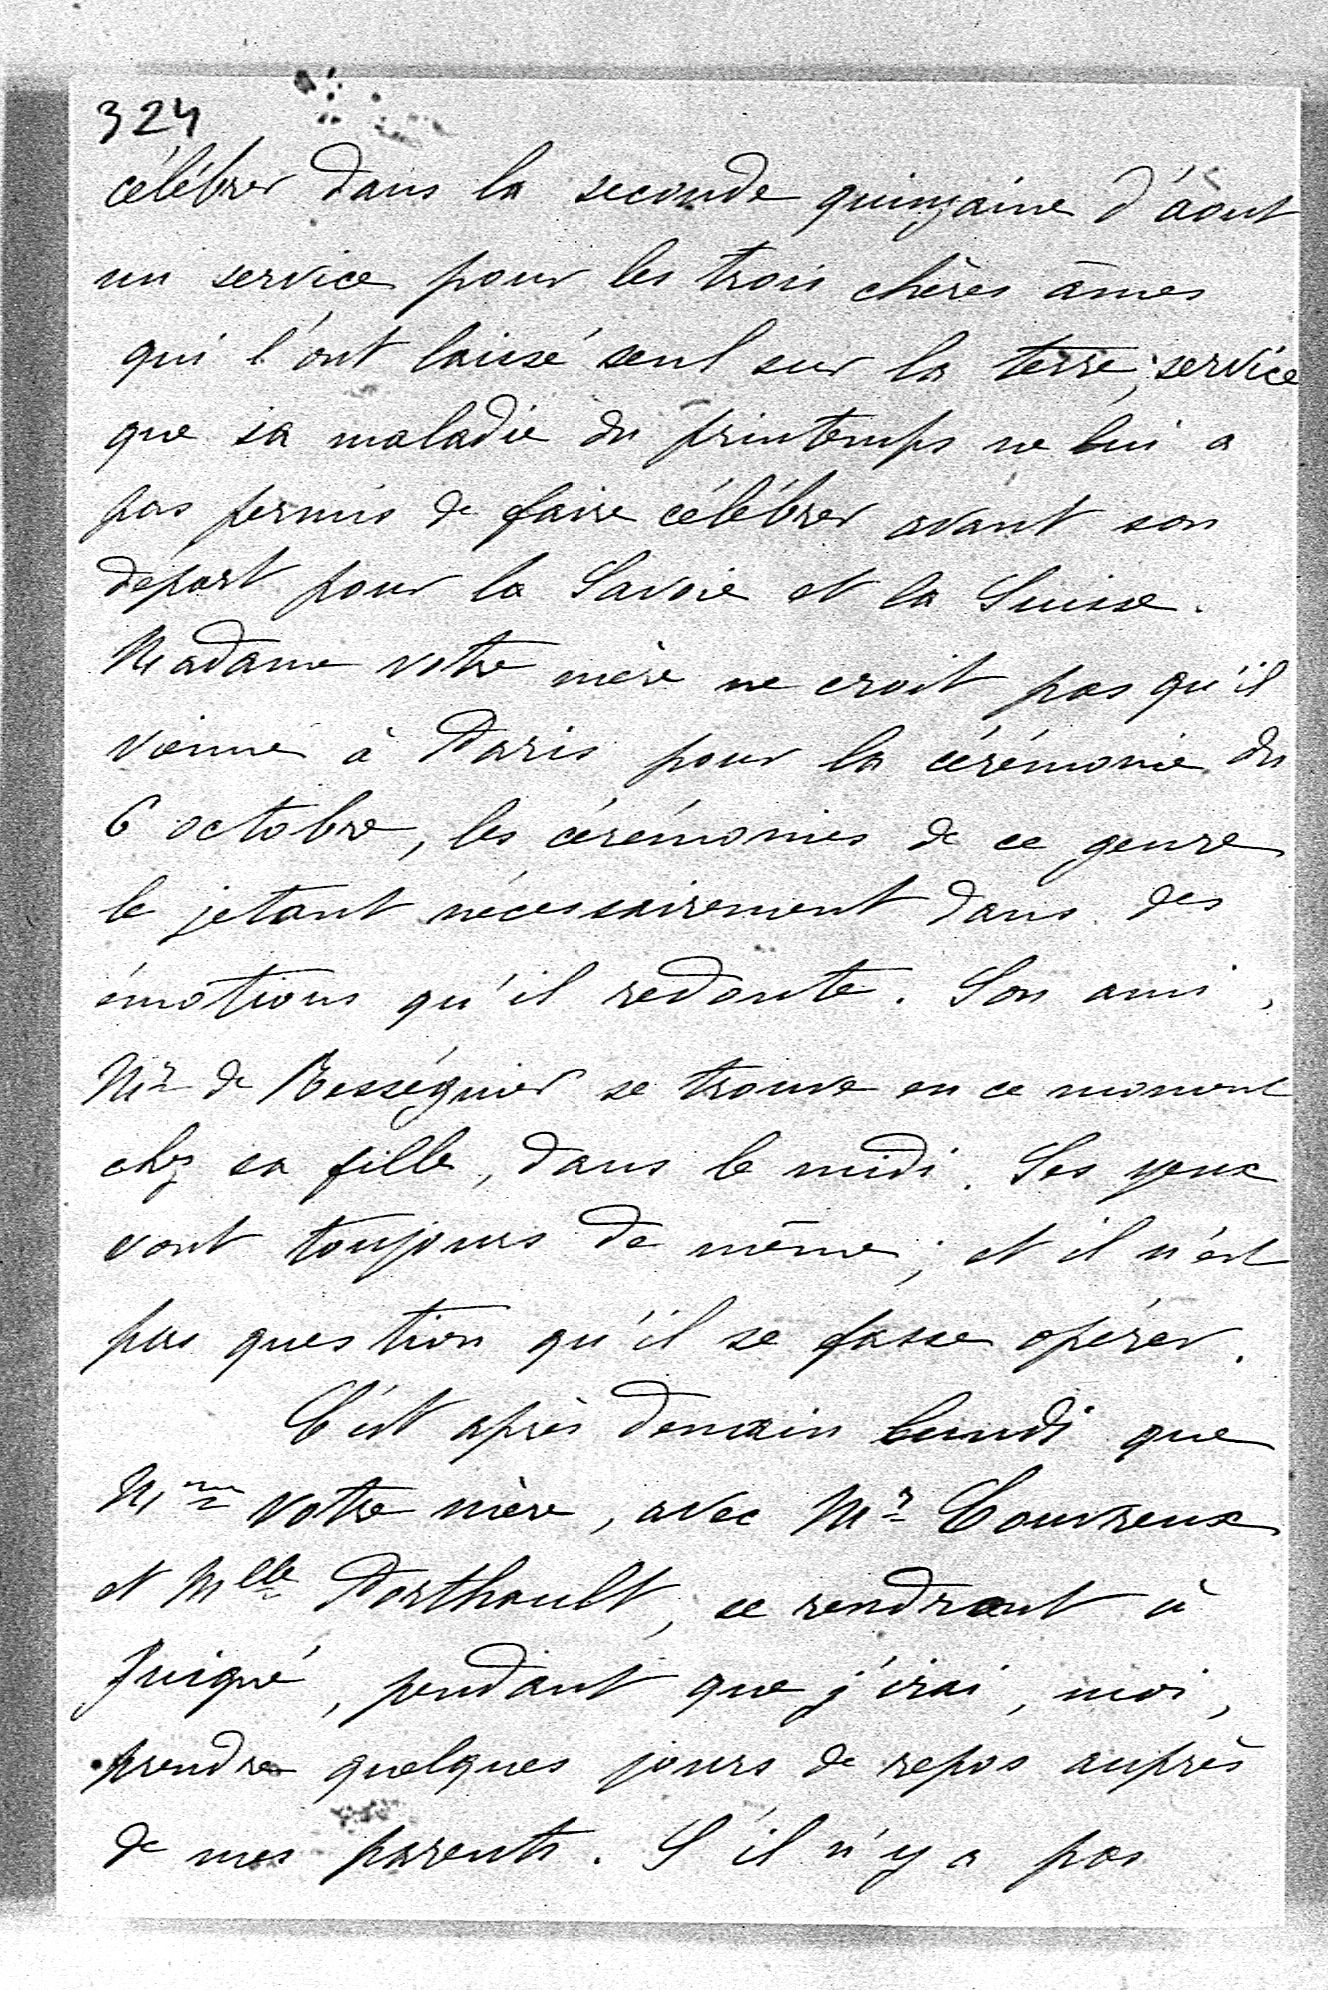 324
célébrer dans la seconde quinzaine d'août
un service pour les trois chères âmes
qui l'ont laissé seul sur la terre; service
que sa maladie du printemps ne lui a
pas permis de faire célébrer avant son
départ pour la Savoie et la Suisse.
Madame votre mère ne croit pas qu'il
vienne à Paris pour la cérémonie du
6 octobre, les cérémonies de ce genre
le jetant nécessairement dans des
émotions qu'il redoute. Son ami,
Mr de Rességuier se trouve en ce moment
chez sa fille, dans le midi. Ses yeux
vont toujours de même; et il n'est
pas question qu'il se fasse opérer.
C'est après demain lundi que
Mme votre mère, avec Mr Couvreux
et Melle Porthault, se rendront à
Juigné, pendant que j'irai, moi,
prendre quelques jours de repos auprès
de mes parents. S'il n'y a pas